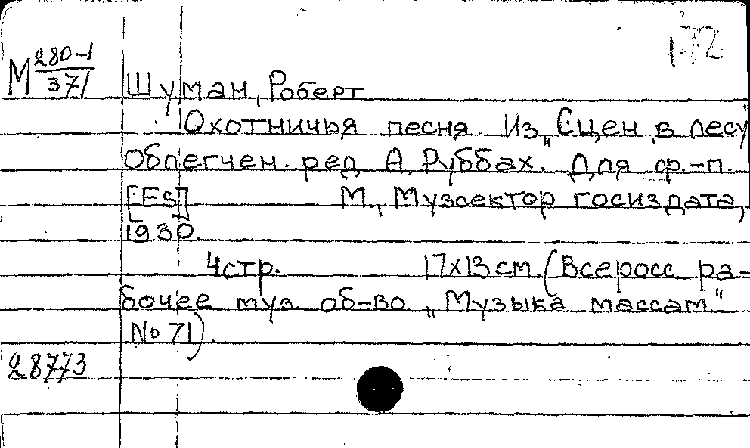 172
М 280-1
371
Шуман, Роберт
Охотничья песня. Из „Сцен в лесу"
Облегчен. ред. А. Руббах. Для ф.-п.
[Es] М., Музсектор госиздата,
1930.
4 стр. 17х13 см. (Всеросс. ра-
бочее муз. об-во „Музыка массам"
№ 71).
28773